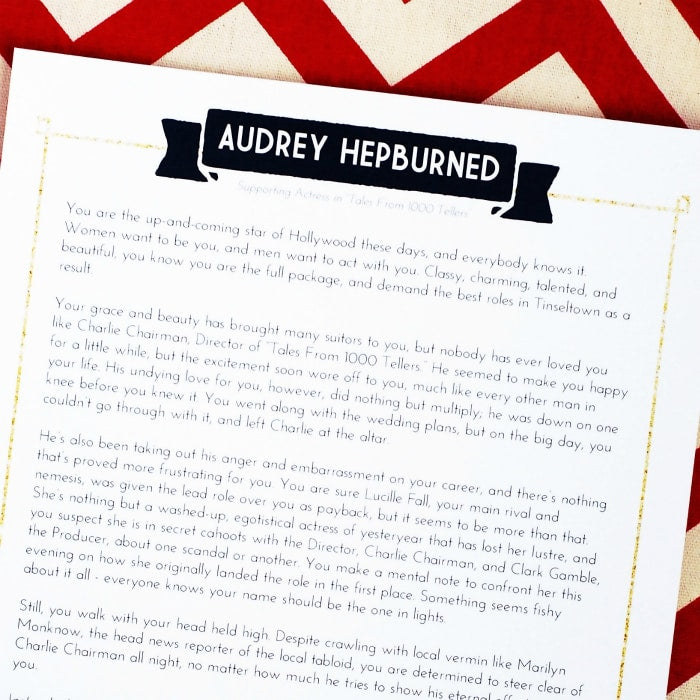 AUDREY HEPBURNED
Supporting Actress in "Tales From 1000 Tellers"
You are the up-and-coming star of Hollywood these days, and everybody knows it.
Women want to be you, and men want to act with you. Classy, charming, talented, and
beautiful, you know you are the full package, and demand the best roles in Tinseltown as a
result.
Your grace and beauty has brought many suitors to you, but nobody has ever loved you
like Charlie Chairman, Director of "Tales From 1000 Tellers." He seemed to make you happy
for a little while, but the excitement soon wore off to you, much like every other man in
your life. His undying love for you, however, did nothing but multiply; he was down on one
knee before you knew it. You went along with the wedding plans, but on the big day, you
couldn't go through with it, and left Charlie at the altar.
He's also been taking out his anger and embarrassment on your career, and there's nothing
that's proved more frustrating for you. You are sure Lucille Fall, your main rival and
nemesis, was given the lead role over you as payback, but it seems to be more than that.
She's nothing but a washed-up, egotistical actress of yesteryear that has lost her lustre, and
you suspect she is in secret cahoots with the Director, Charlie Chairman, and Clark Gamble,
the Producer, about one scandal or another. You make a mental note to confront her this
evening on how she originally landed the role in the first place. Something seems fishy
about it all - everyone knows your name should be the one in lights.
Still, you walk with your head held high. Despite crawling with local vermin like Marilyn
Monknow, the head news reporter of the local tabloid, you are determined to steer clear of
Charlie Chairman all night, no matter how much he tries to show his eternal
you.